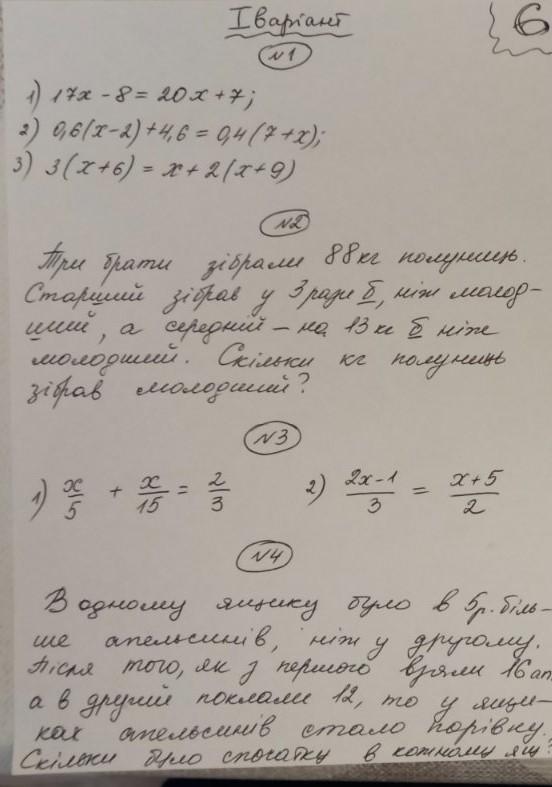 І варіант
6
№1
1) 17x - 8 = 20x + 7;
2) 0,6(x-2) + 4,6 = 0,4(7+x);
3) 3(x+6) = x + 2(x+9)
№2
Три брати зібрали 88 кг полуниць.
Старший зібрав у 3 рази б, ніж молод-
ший, а середній - на 13 кг б ніж
молодший. Скільки кг полуниць
зібрав молодший?
№3
1) x/5 + x/15 = 2/3 2) (2x-1)/3 = (x+5)/2
№4
В одному ящику було в 5 р. біль-
ше апельсинів, ніж у другому.
Після того, як з першого взяли 16 ап,
а в другий поклали 12, то у ящи-
ках апельсинів стало порівну.
Скільки було спочатку в кожному ящ?